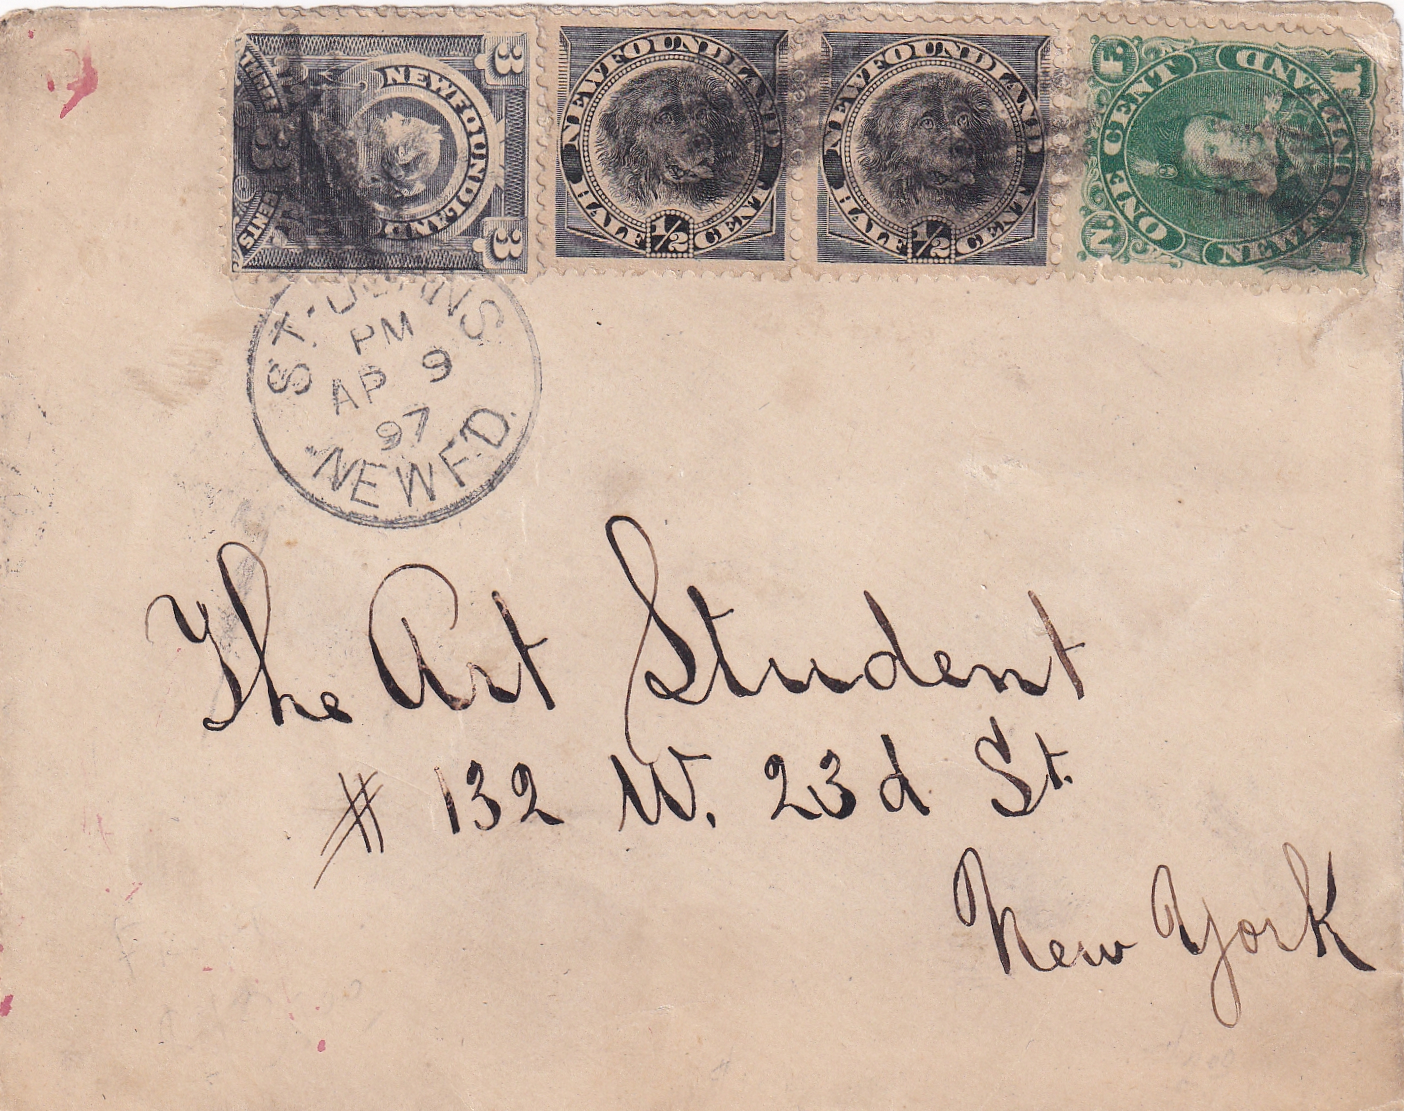 3 3 NEWFOUNDLAND THREE 3 CENTS
NEWFOUNDLAND
HALF 1/2 CENT
NEWFOUNDLAND
HALF 1/2 CENT
N. F. 1 1 ONE CENT NEWFOUNDLAND
ST. JOHN'S
PM
AP 9
97
NEWF'D.
The Art Student
# 132 W. 23d St.
New York